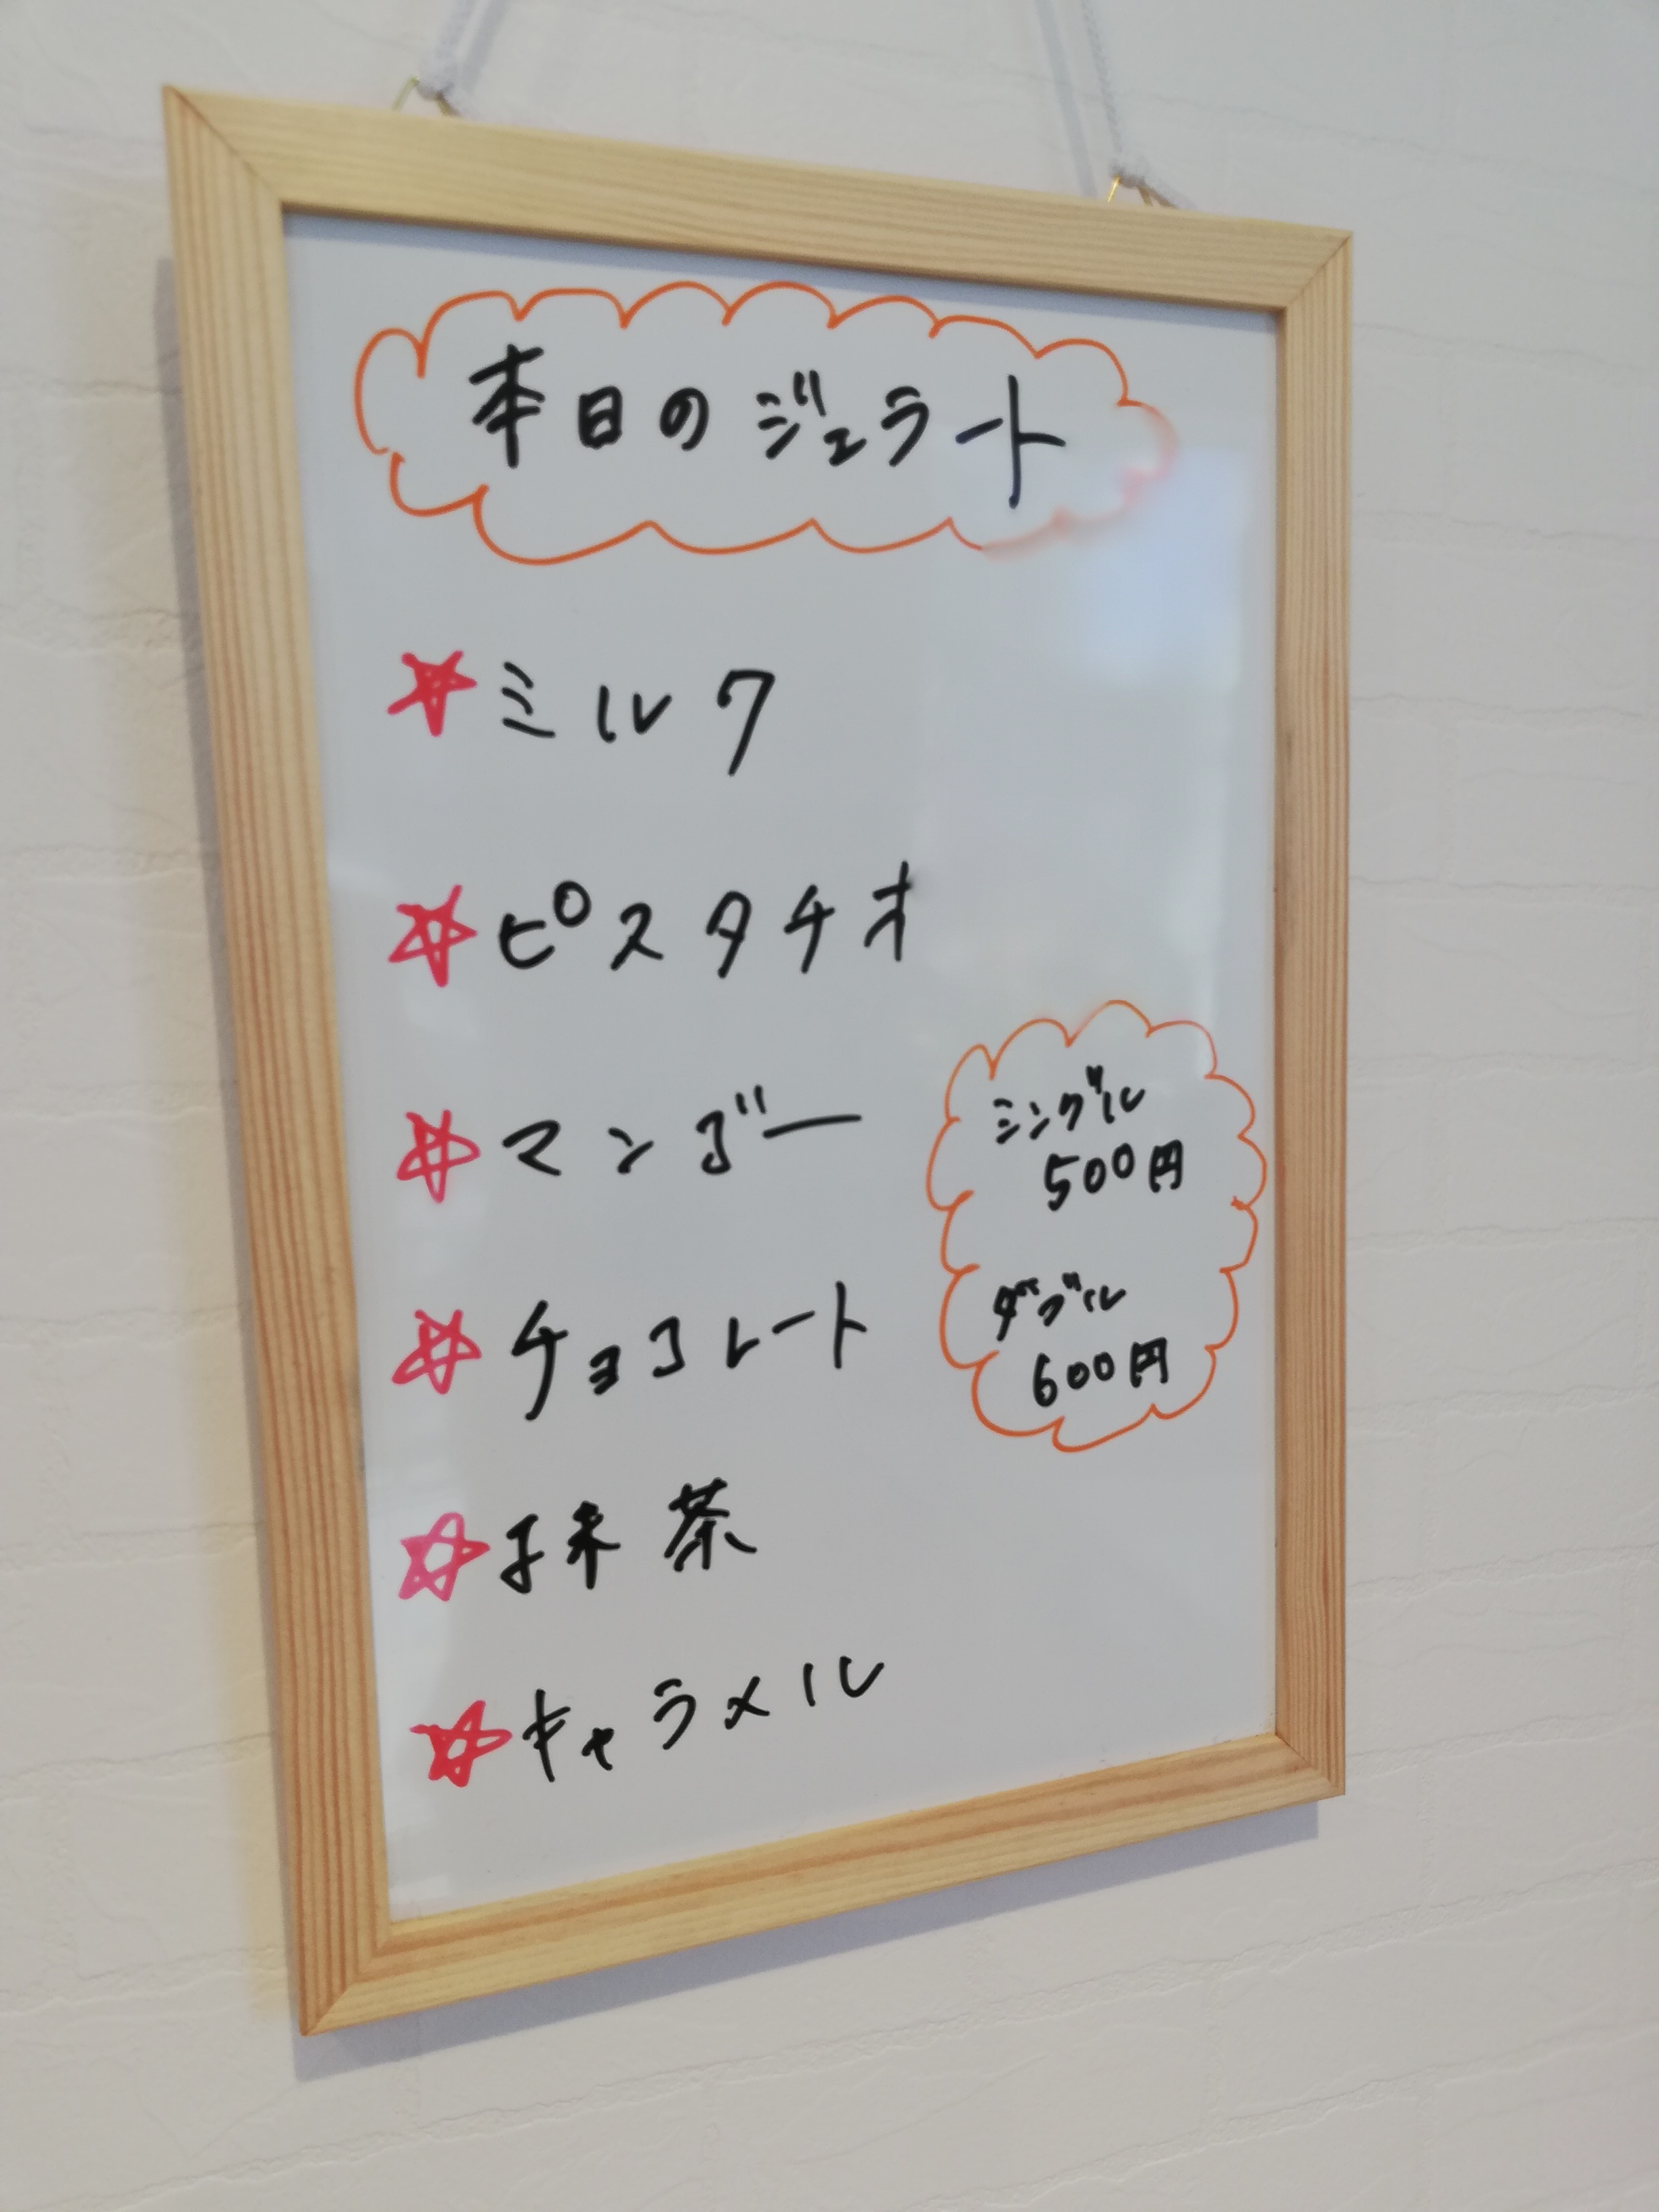 本日のジェラート
☆ミルク
☆ピスタチオ
☆マンゴー
☆チョコレート
☆抹茶
☆キャラメル
シングル
500円
ダブル
600円